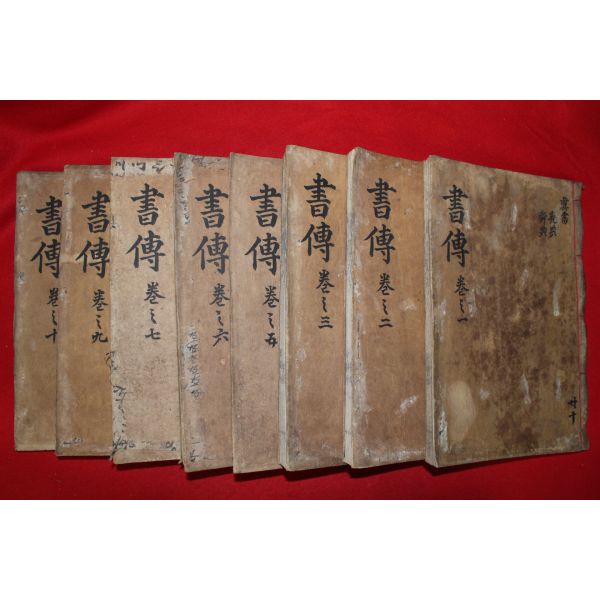 書傳 卷之一
虞書
堯典
舜典
共十
書傳 卷之二
書傳 卷之三
書傳 卷之五
書傳 卷之六
書傳 卷之七
書傳 卷之九
書傳 卷之十